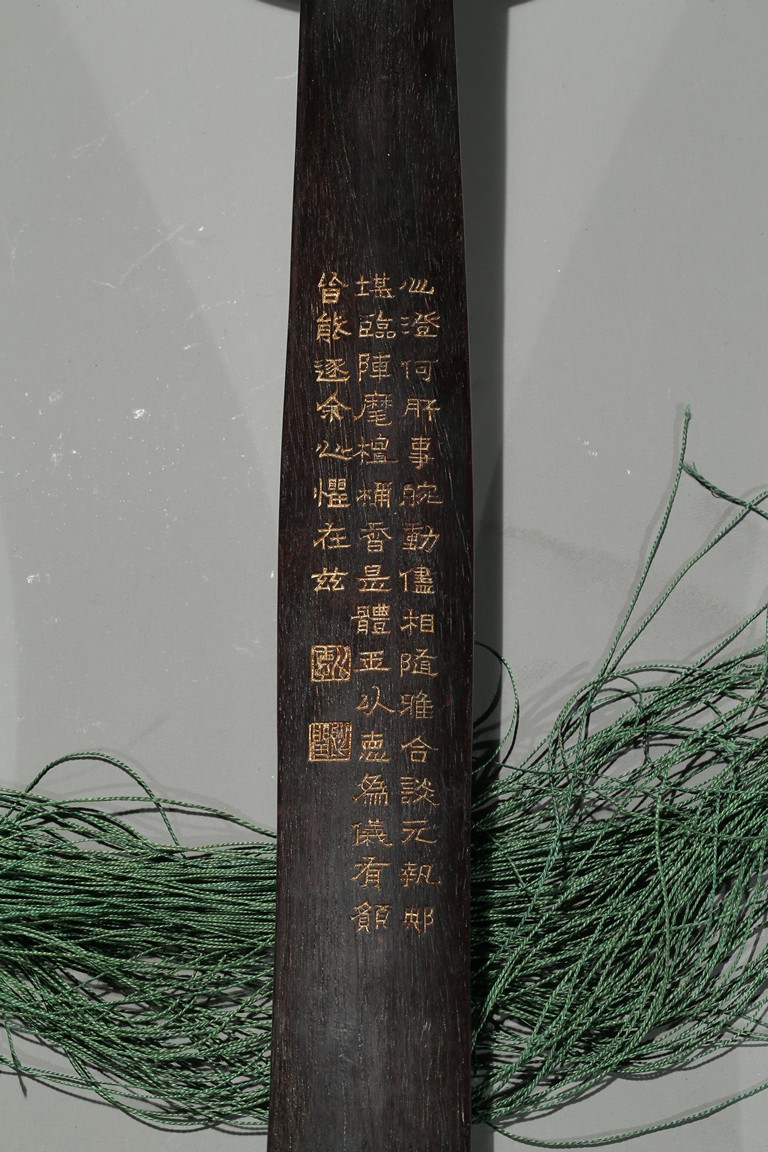 心澄何所事腕動儘相隨雅合談元執那
堪臨陣麾檀楠香是體玉以德為儀有願
皆能遂余心懼在茲
比德
朗潤